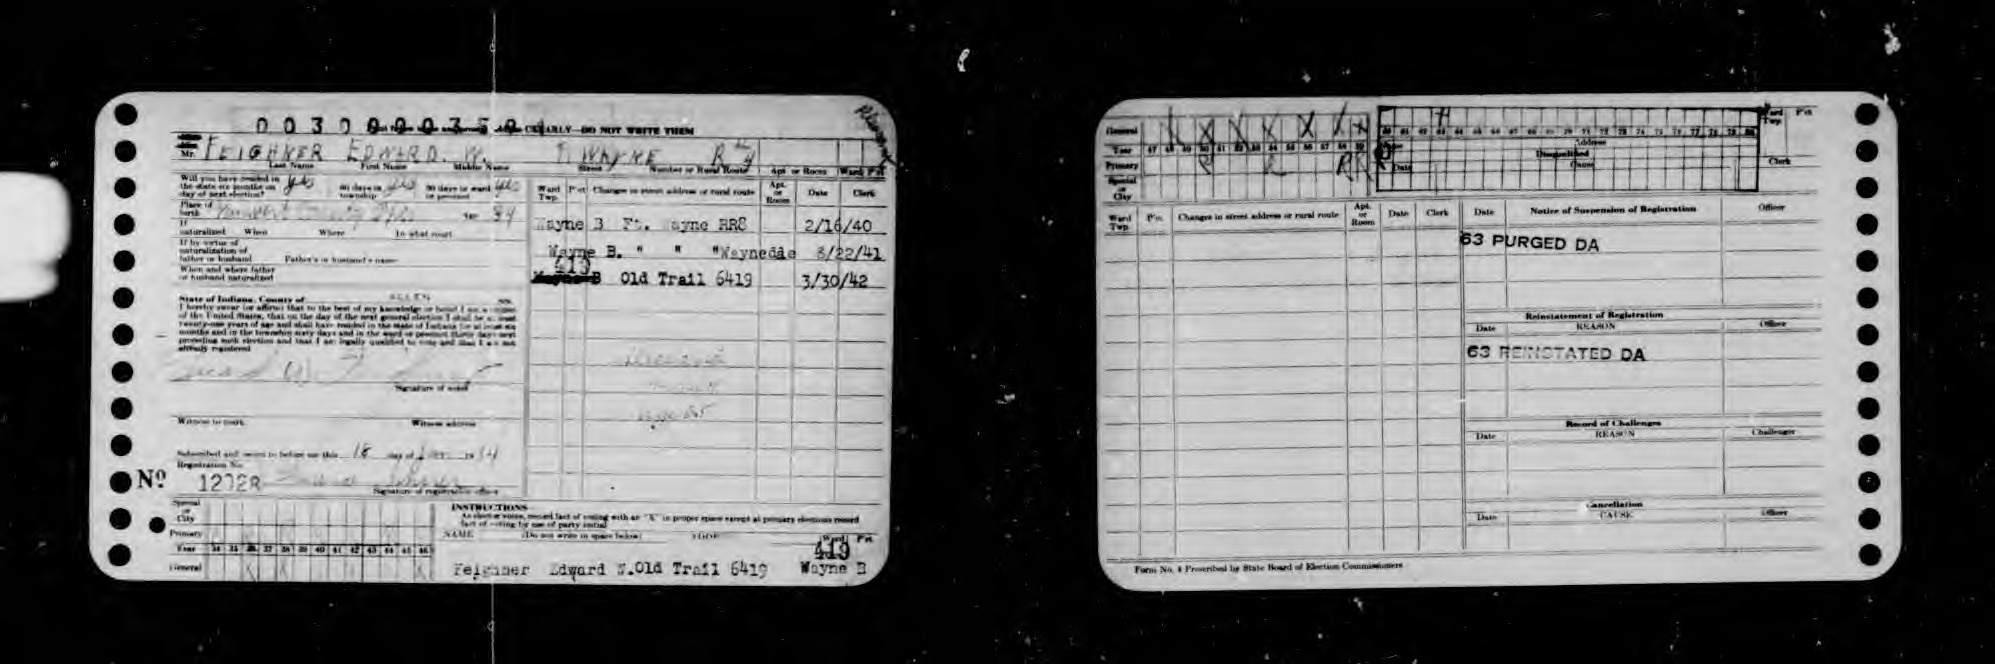 0 0 3 0 0 0 0 0 3 5 0 CLEARLY—DO NOT WRITE THEM
Mr. FEIGHNER EDWARD. W. FT. WAYNE R 4
Last Name First Name Middle Name Street Number or Rural Route Apt or Room Ward Pct
Will you have resided in
the state six months on yes 60 days in yes 30 days in ward yes
day of next election? township or precinct
Ward Twp. Pct Changes in street address or rural route Apt. or Room Date Clerk
Place of
birth County
If
naturalized When Where In what court
If by virtue of
naturalization of
father or husband Father's or husband's name
When and where father
or husband naturalized
Wayne B Ft. Wayne RR8 2/16/40
Wayne B. " " "Waynedale 3/22/41
413
Wayne B Old Trail 6419 3/30/42
State of Indiana, County of ALLEN ss.
I hereby swear (or affirm) that to the best of my knowledge or belief I am a citizen
of the United States, that on the day of the next general election I shall be at least
twenty-one years of age and shall have resided in the State of Indiana for at least six
months and in the township sixty days and in the ward or precinct thirty days next
preceding such election and that I am legally qualified to vote and that I am not
already registered
Signature of voter
Witness to mark Witness address
Subscribed and sworn to before me this 18 day of 19
Registration No.
Nº 1272R
Signature of registration officer
Special or City
Primary
Year 34 35 36 37 38 39 40 41 42 43 44 45 46
General
INSTRUCTIONS
As elector votes, record fact of voting with an "X" in proper space except at primary elections record
fact of voting by use of party initial
NAME (Do not write in space below) Ward Pct
419
Feighner Edward W. Old Trail 6419 Wayne B
General X X X X X X X
Year 47 48 49 50 51 52 53 54 55 56 57 58 59
Primary R R R R
Special or City
60 61 62 63 64 65 66 67 68 69 70 71 72 73 74 75 76 77 78 79 80
Ward Twp. Pct
Name Address
Disqualified
Date Cause Clerk
Ward Twp. Pct. Changes in street address or rural route Apt. or Room Date Clerk
Date Notice of Suspension of Registration Officer
63 PURGED DA
Reinstatement of Registration
Date REASON Officer
63 REINSTATED DA
Record of Challenges
Date REASON Challenger
Cancellation
Date CAUSE Officer
Form No. 4 Prescribed by State Board of Election Commissioners